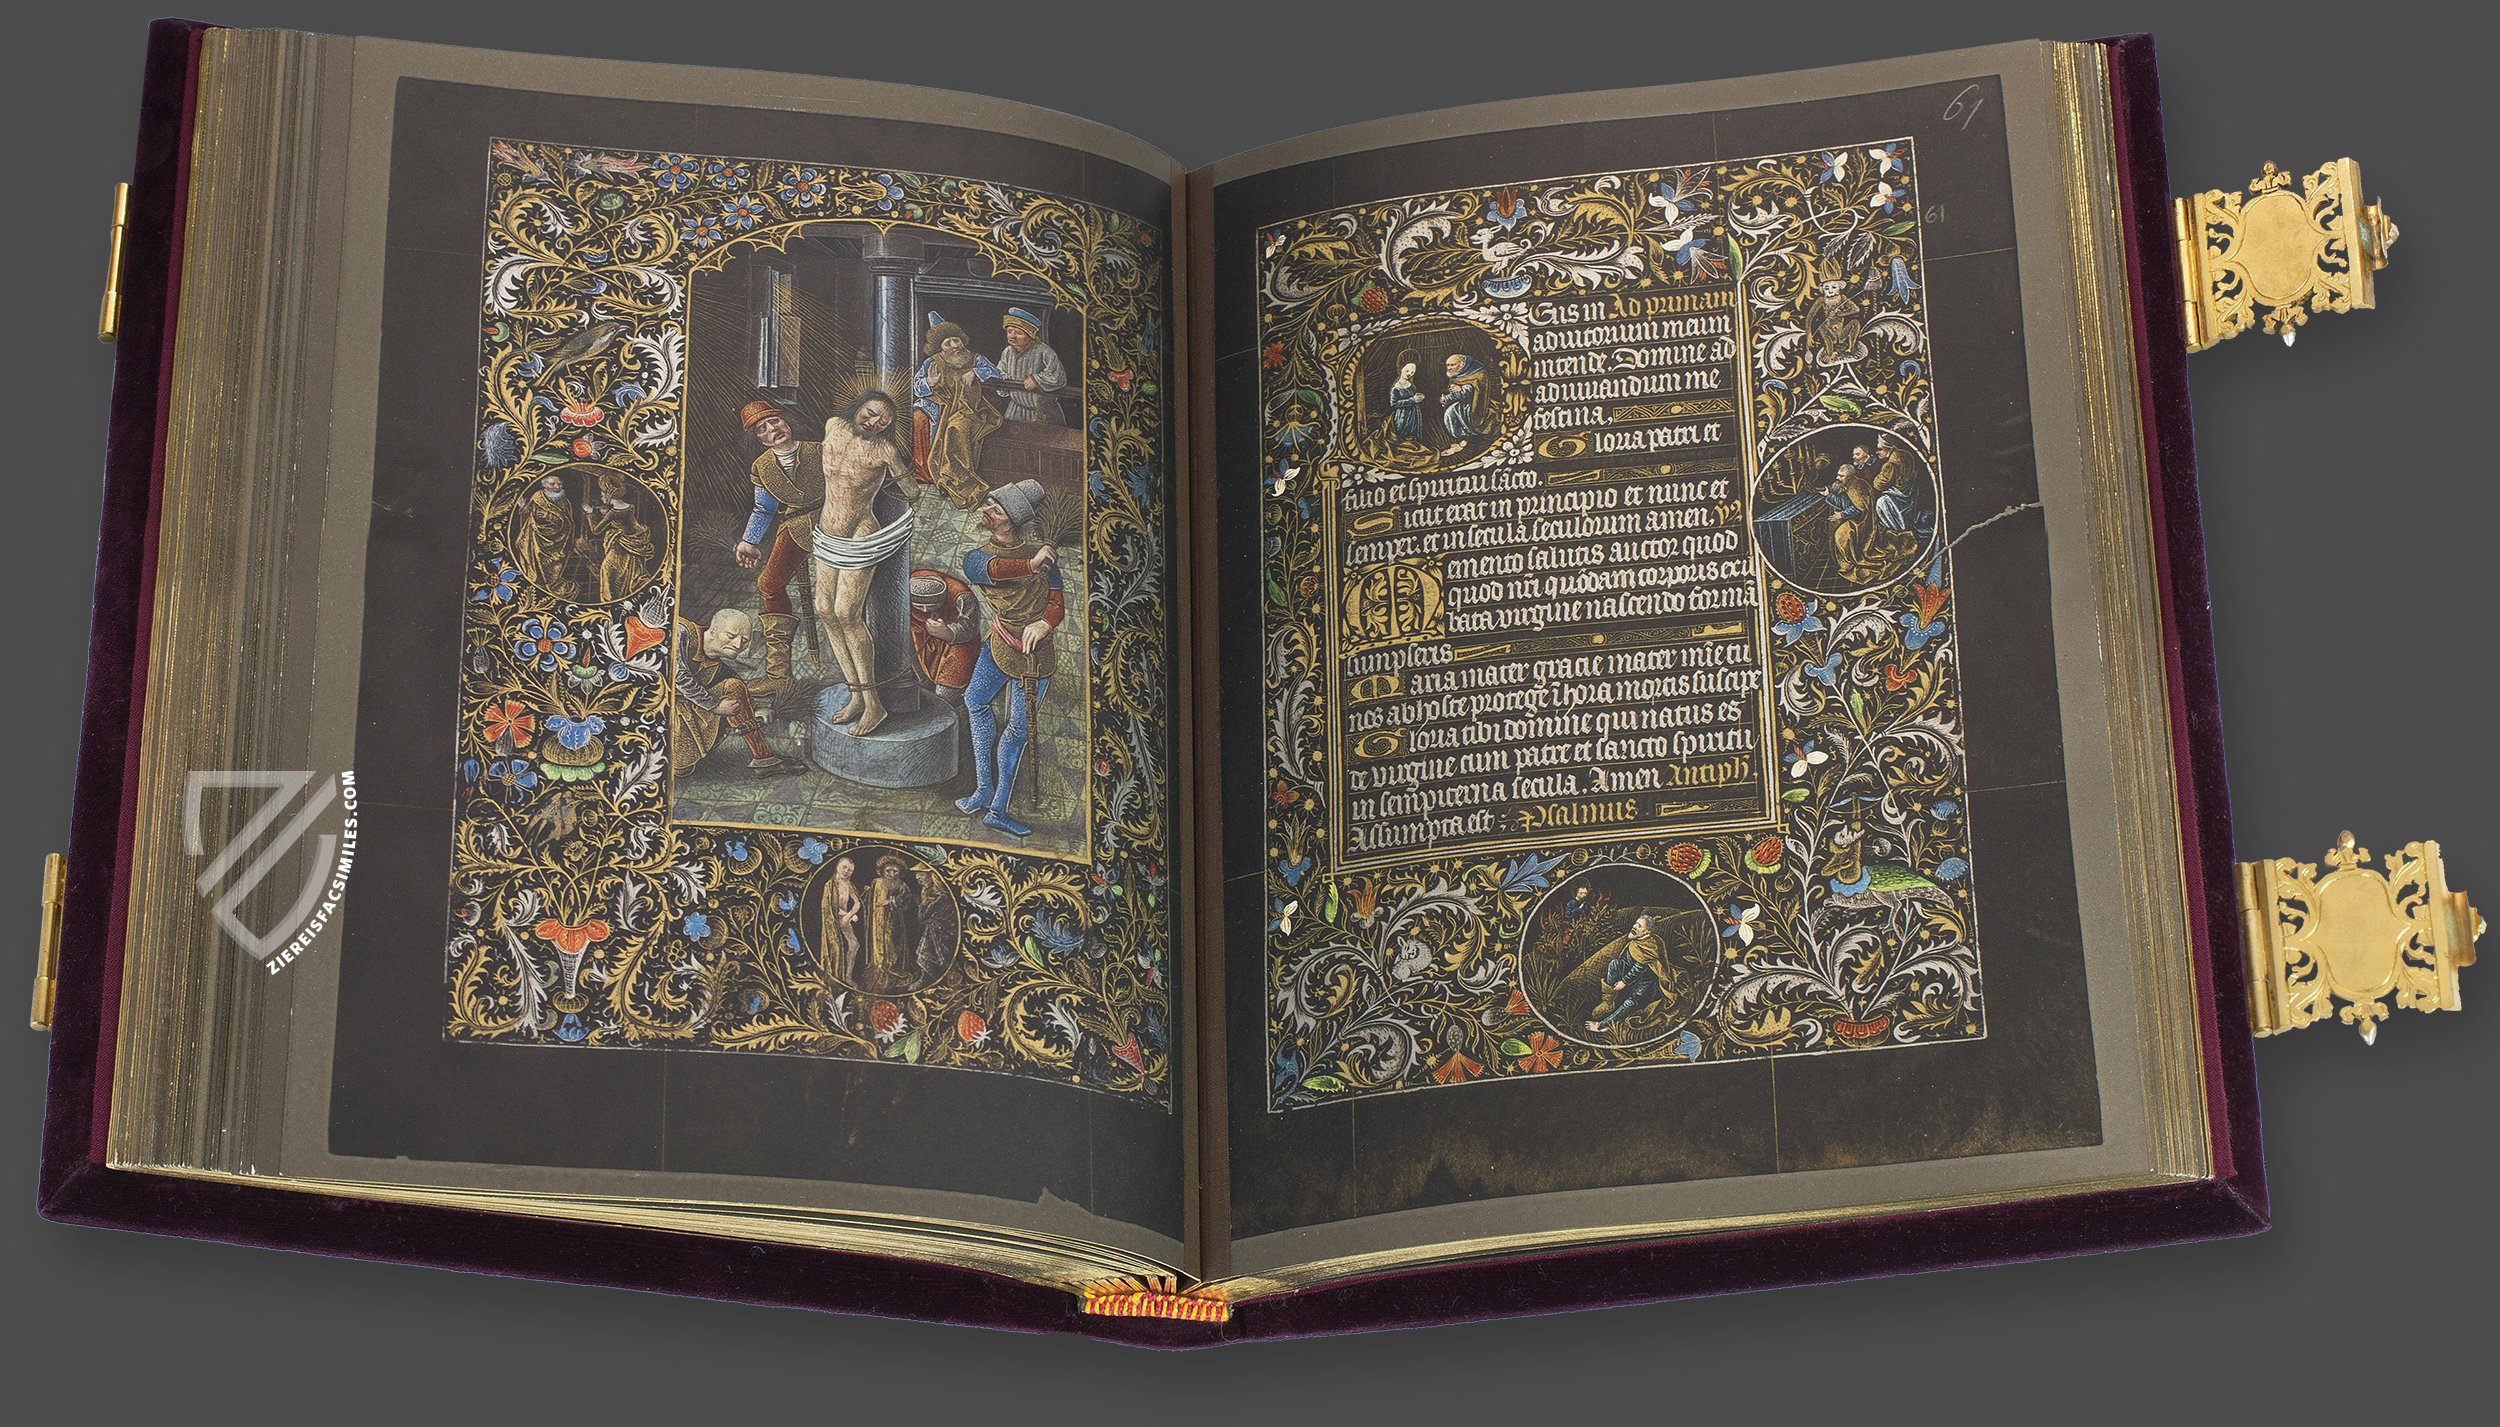 61
61
Deus in Ad primam
adiutorium meum
intende. Domine ad
adiuuandum me
festina,
Gloria patri et
filio et spiritui sc̄to.
Sicut erat in principio et nunc et
semper. et in secula seculorum amen. ys
Memento salutis auctor quod
quod nr̄i quōdam corporis ex il
bata virgine nascendo formā
sumpseris
Maria mater gracie mater mīe tu
nos ab hoste protege ī hora mortis suscipe
Gloria tibi domine qui natus es
de virgine cum patre et sancto spiritu
in sempiterna secula. Amen Antiph.
Assumpta est : Psalmus
ZIEREISFACSIMILES.COM